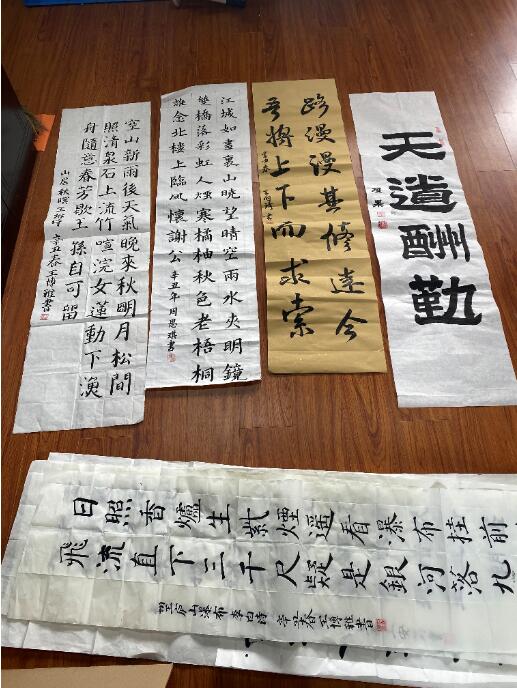 空山新雨後天氣晚來秋明月松間
照清泉石上流竹喧浣女蓮動下漁
舟隨意春芳歇王孫自可留
山居秋暝王維詩 辛丑春王博雅書
江城如畫裏山晓望晴空雨水夾明鏡
雙橋落彩虹人煙寒橘柚秋色老梧桐
誰念北樓上臨風懷謝公 辛丑年周恩琪書
路漫漫其修遠兮
吾將上下而求索
天道酬勤
日照香爐生紫煙遥看瀑布挂前
飛流直下三千尺疑是銀河落九
望廬山瀑布 李白詩 辛丑春王博雅書